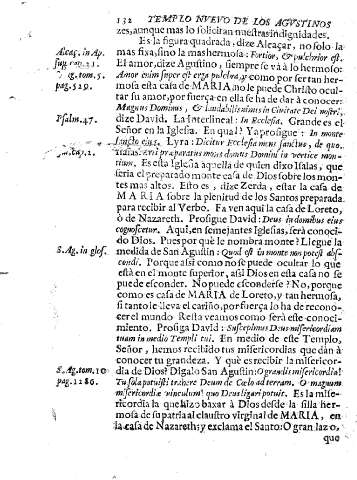 132 TEMPLO NUEVO DE LOS AGUSTINOS
zes, aunque mas lo solicitan nuestras indignidades.
Es la figura quadrada, dize Alcaçar, no solo la
mas fixa, sino la mas hermosa: Fortior, & pulchrior est.
El amor, dize Agustino, siempre se và à lo hermoso:
Amor enim super est erga pulchra, y como por ser tan her
mosa esta casa de MARIA no le puede Christo ocul
tar su amor, por fuerça en ella se ha de dàr à conocer:
Magnus Dominus, & laudabilis nimis in Civitate Dei nostri,
dize David. La interlineal: In Ecclesia. Grande es el
Señor en la Iglesia. En qual? Y a prosigue: In monte
sancto eius. Lyra: Dicitur Ecclesia mons sanctus, de quo
Isaias: erit præparatus mons domus Domini in vertice mon-
tium. Es esta Iglesia aquella de quien dixo Isaìas, que
seria el preparado monte casa de Dios sobre los mon-
tes mas altos. Esto es, dize Zerda, estar la casa de
MARIA sobre la plenitud de los Santos preparada
para recibir al Verbo. Fa ven aqui la casa de Loreto,
ò de Nazareth. Prosigue David: Deus in domibus eius
cognoscetur. Aqui, en semejantes Iglesias, serà conoci-
do Dios. Pues por què le nombra monte? Llegue la
medida de San Agustin: Quod est in monte non potest abs-
condi. Porque assi como no se puede ocultar lo que
està en el monte superior, assi Dios en esta casa no se
puede esconder. No puede esconderse? No, porque
como es casa de MARIA de Loreto, y tan hermosa,
si tanto le lleva el cariño, por fuerça lo ha de recono-
cer el mundo Resta veamos como serà este conoci-
miento. Prosiga David: Suscepimus Deus misericordiam
tuam in medio Templi tui. En medio de este Templo,
Señor, hemos recibido tus misericordias que dàn à
conocer tu grandeza. Y què es recibir la misericor-
dia de Dios? Digalo San Agustin: O grandis misericordia!
Tu sola potuisti trahere Deum de Cœlo ad terram. O magnum
misericordiæ vinculum! quo Deus ligari potuit. Es la mise-
ricordia la que hizo baxar à Dios desde la silla her-
mosa de su patria al claustro virginal de MARIA, en
la casa de Nazareth; y exclama el Santo: O gran lazo,
que
Alcaç. in Ap.
pag. 529.
Psalm. 47.
S. Ag. in glos.
S. Ag. tom. 10
pag. 1286.